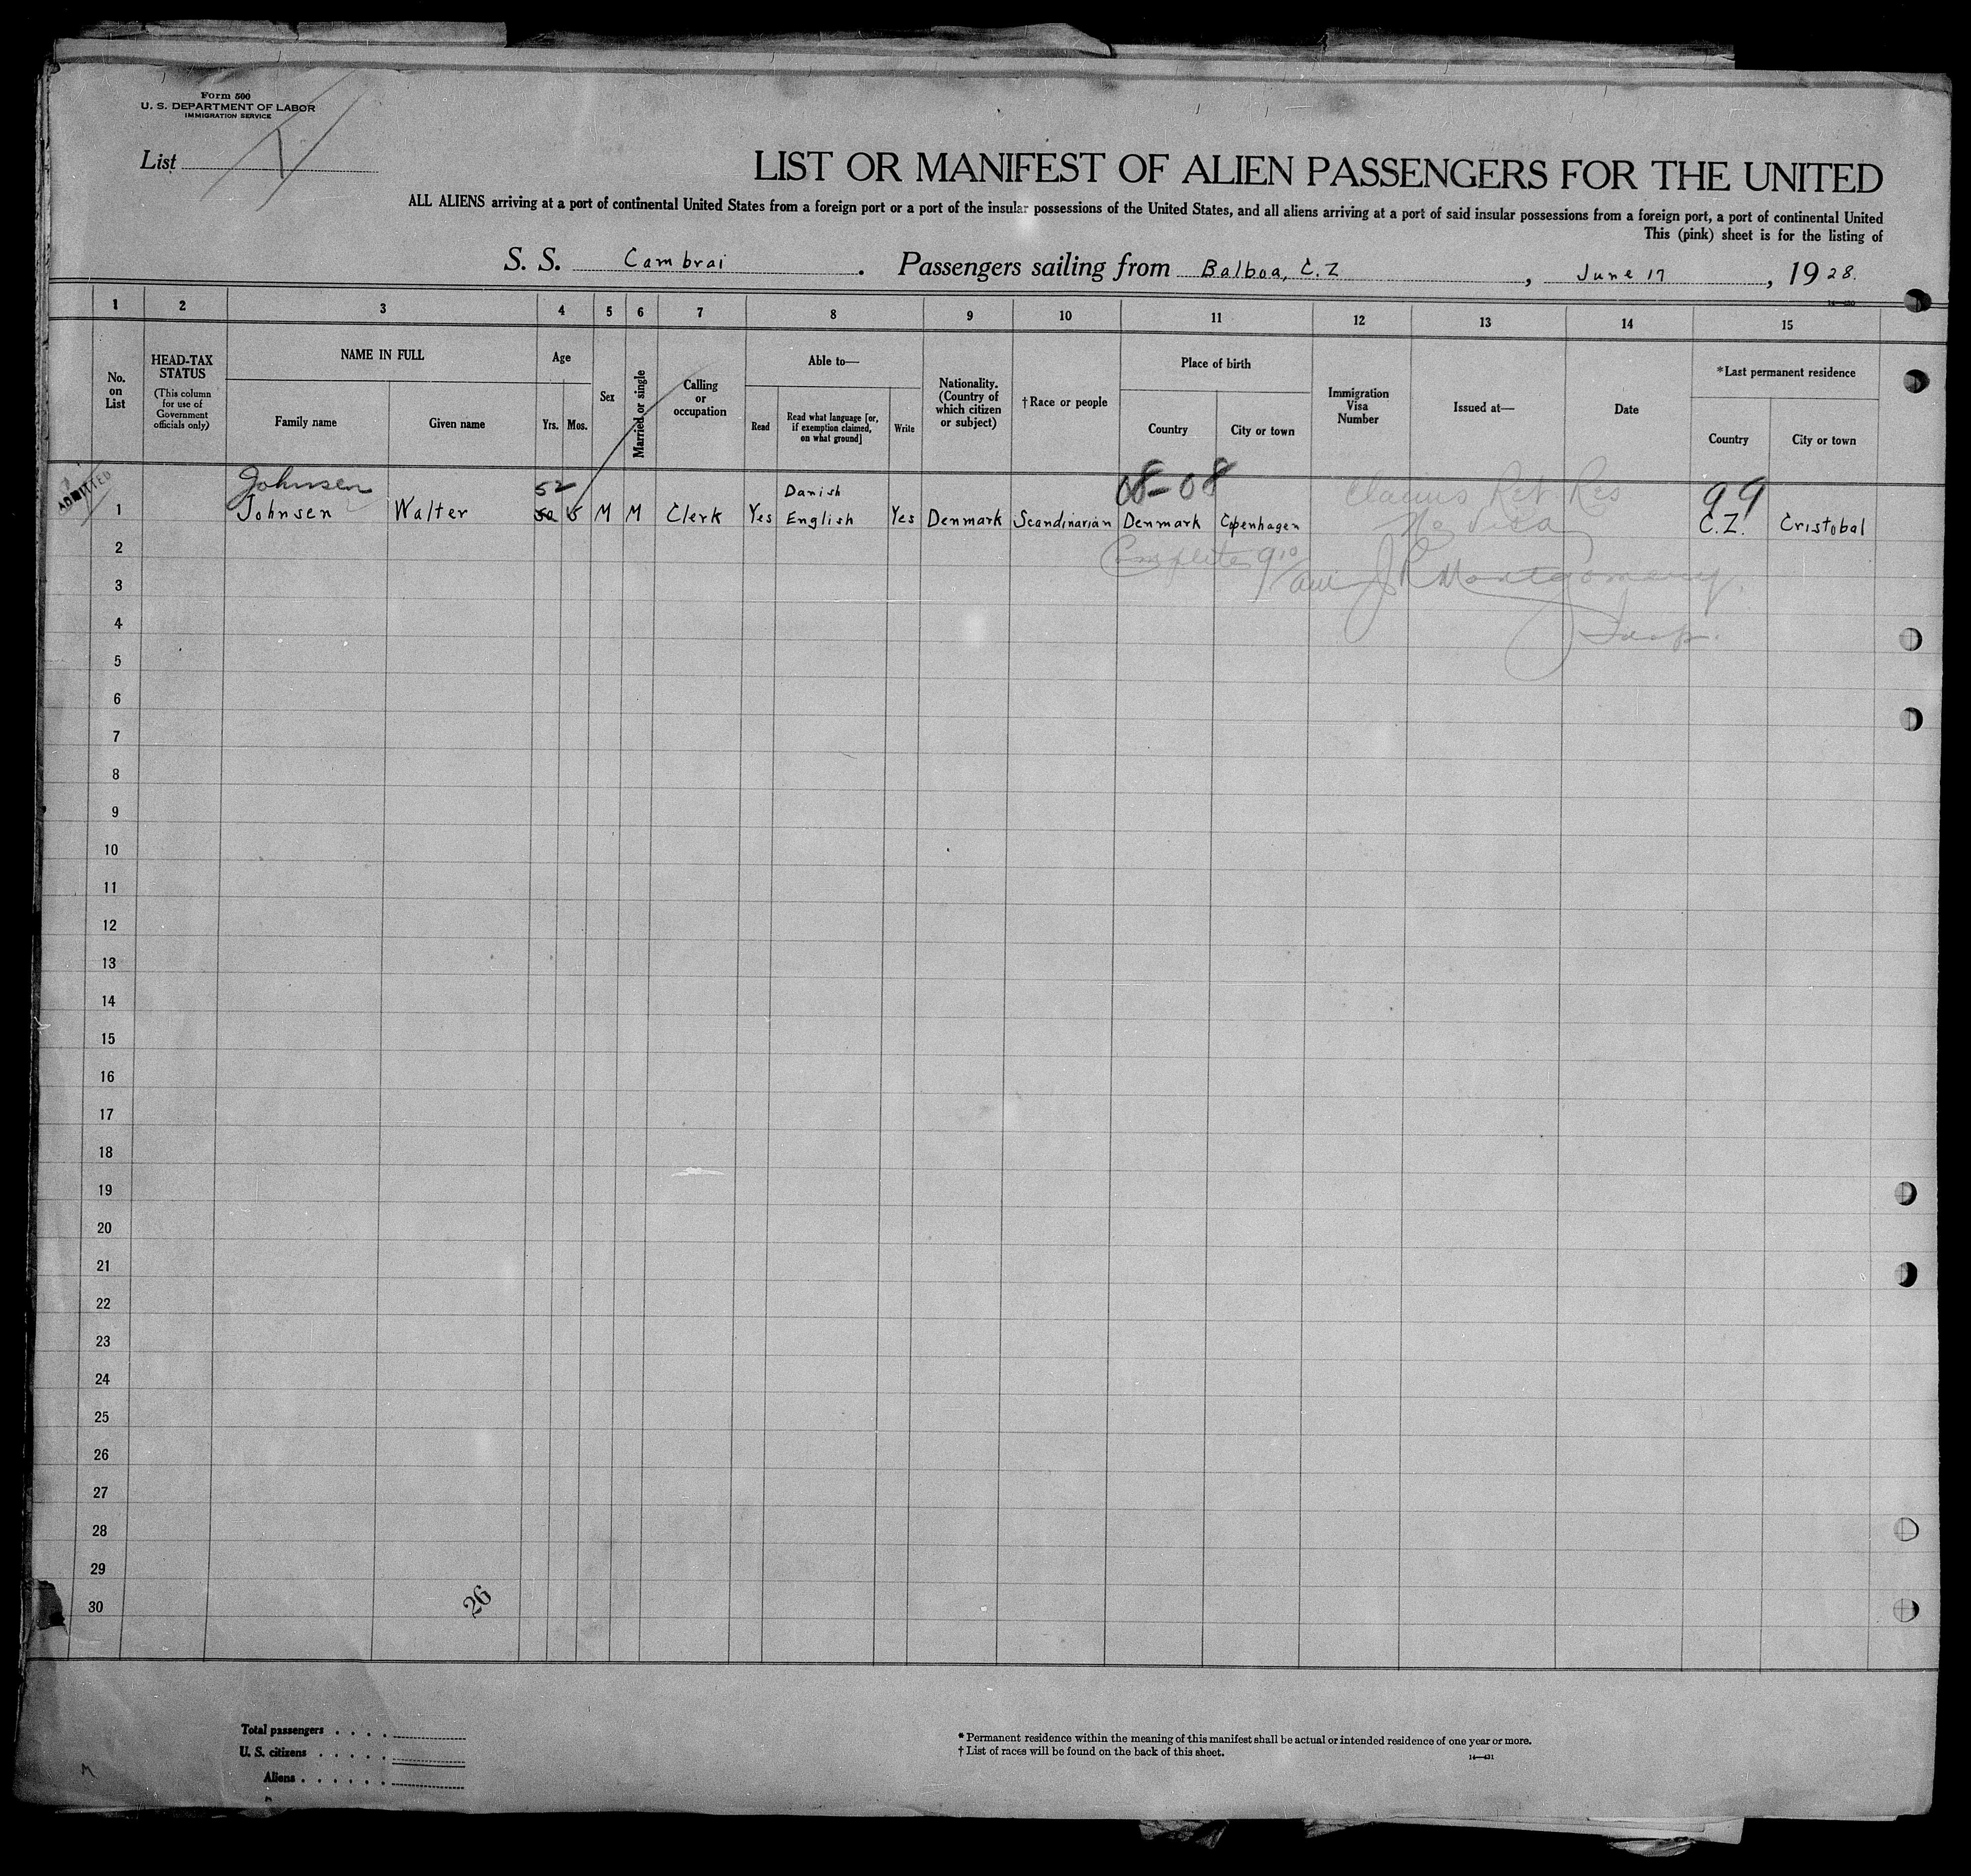 Form 500
U. S. DEPARTMENT OF LABOR
IMMIGRATION SERVICE
List
LIST OR MANIFEST OF ALIEN PASSENGERS FOR THE UNITED
ALL ALIENS arriving at a port of continental United States from a foreign port or a port of the insular possessions of the United States, and all aliens arriving at a port of said insular possessions from a foreign port, a port of continental United
This (pink) sheet is for the listing of
S. S. Cambrai. Passengers sailing from Balboa, C.Z, June 17, 1928.
1 2 3 4 5 6 7 8 9 10 11 12 13 14 15
No. on List
HEAD-TAX STATUS
(This column for use of Government officials only)
NAME IN FULL
Family name Given name
Age
Yrs. Mos.
Sex
Married or single
Calling or occupation
Able to—
Read
Read what language [or, if exemption claimed, on what ground]
Write
Nationality. (Country of which citizen or subject)
†Race or people
Place of birth
Country City or town
Immigration Visa Number
Issued at—
Date
*Last permanent residence
Country City or town
ADMITTED
Johnsen 52 Danish 08-08 Claims Ret Res 99
1 Johnsen Walter 5 M M Clerk Yes English Yes Denmark Scandinavian Denmark Copenhagen No Visa C.Z. Cristobal
2
3 J R Montgomery
4 Insp.
5
6
7
8
9
10
11
12
13
14
15
16
17
18
19
20
21
22
23
24
25
26
27
28
29
30
26
Total passengers
U. S. citizens
Aliens
* Permanent residence within the meaning of this manifest shall be actual or intended residence of one year or more.
† List of races will be found on the back of this sheet.
14—431